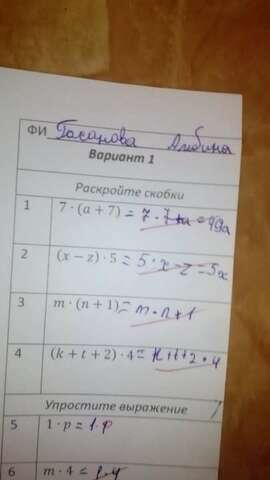 ФИ Гасанова Альбина
Вариант 1
Раскройте скобки
1 7·(a + 7) = 7·7+a=49a
2 (x − z)·5 = 5·x−z=5x
3 m·(n + 1) = m·n+1
4 (k + t + 2)·4 = k+t+2·4
Упростите выражение
5 1·p = 1·p
6 m·4 =